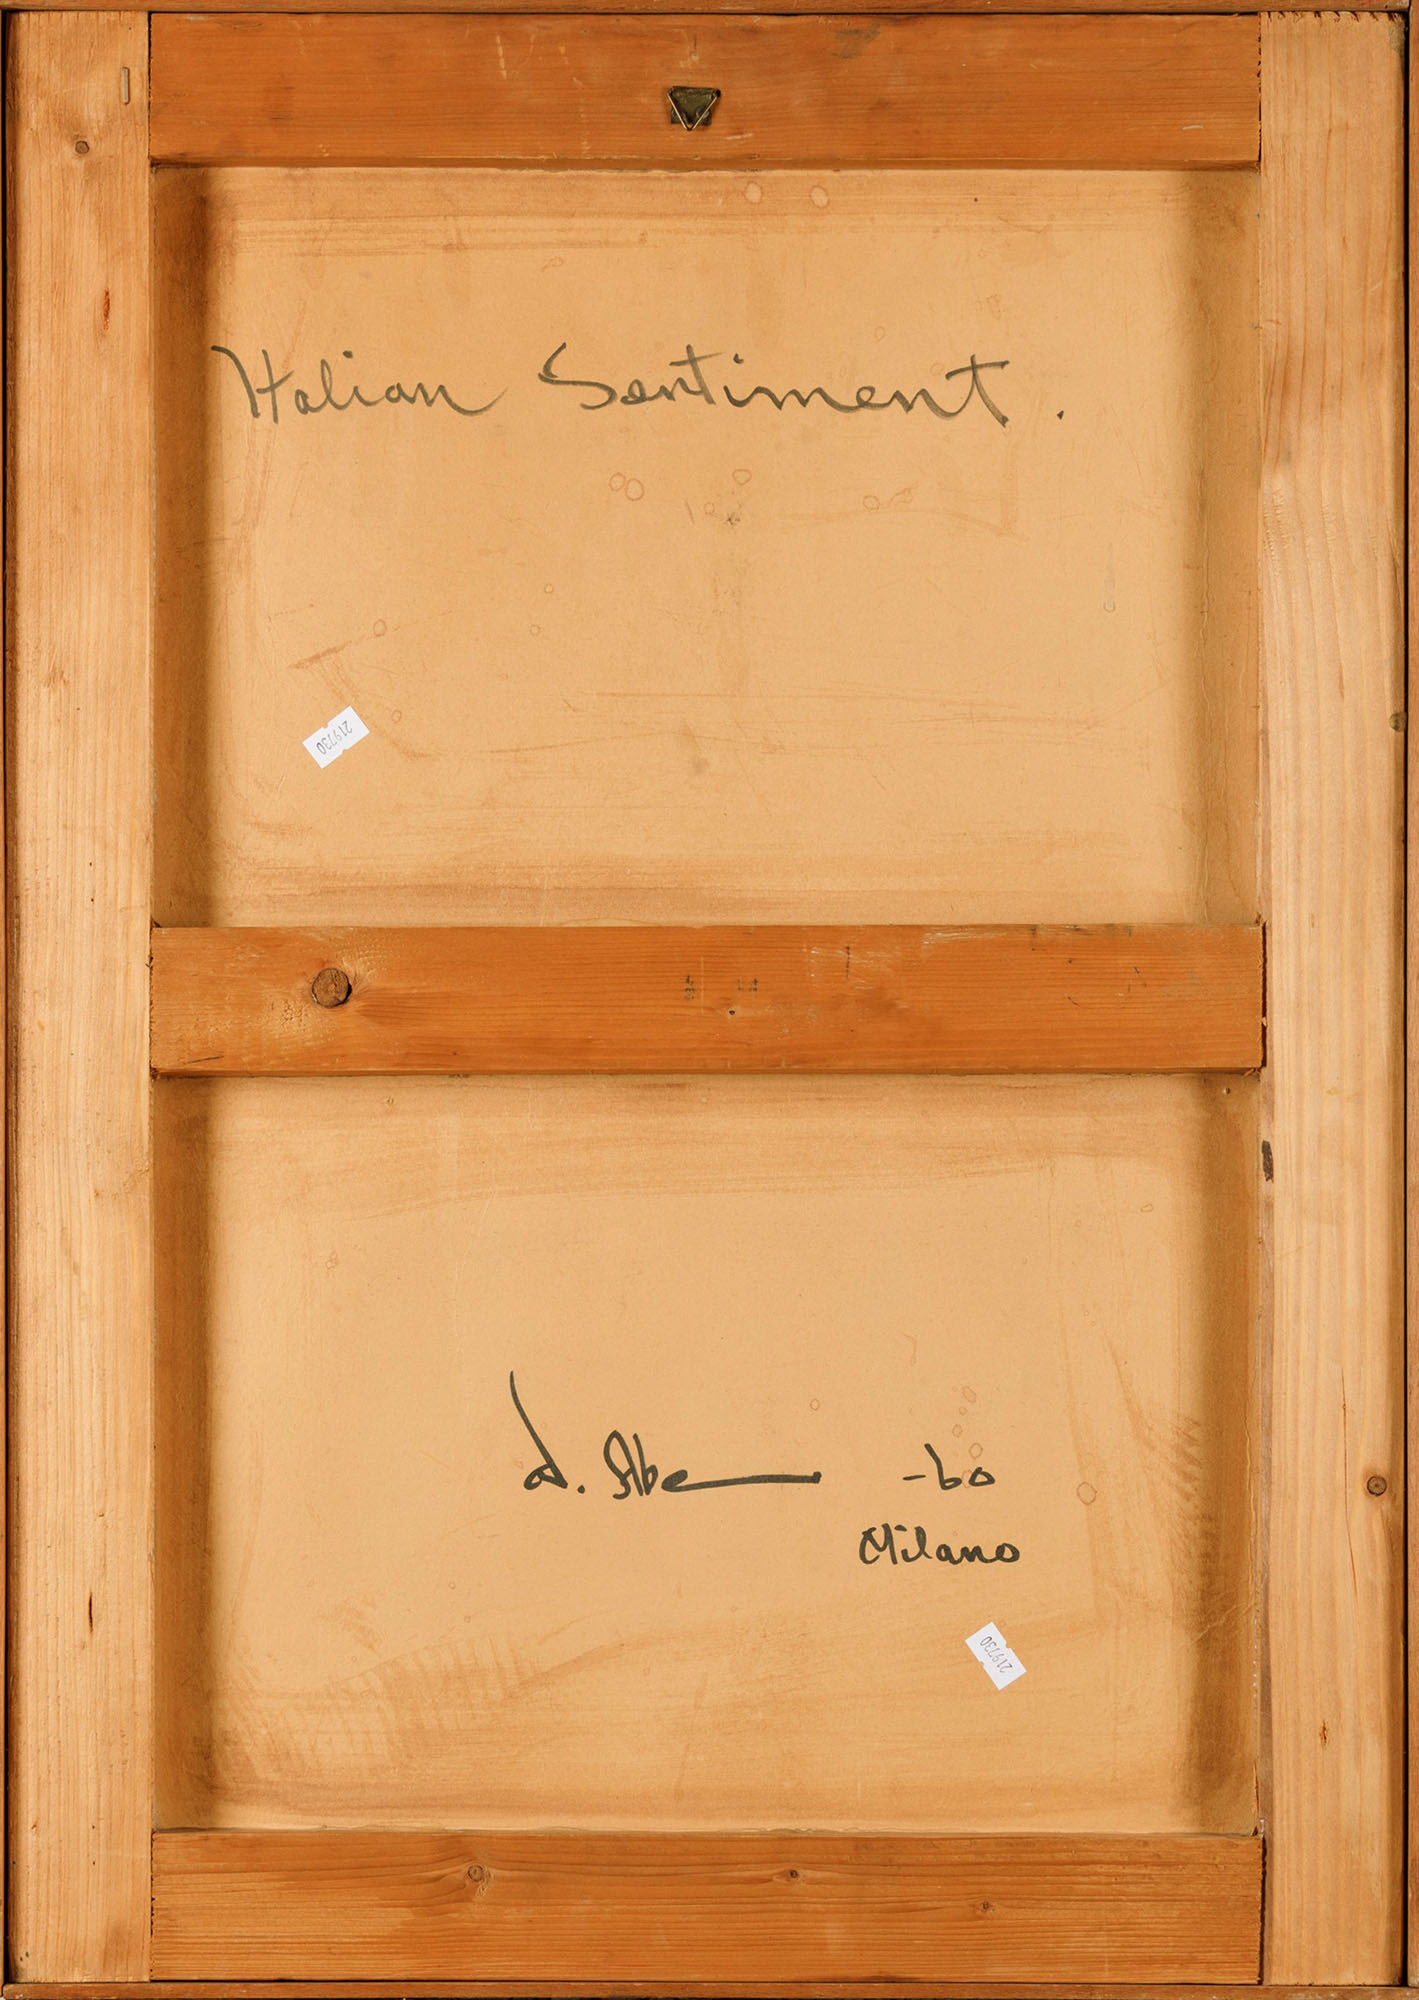 Italian Sentiment.
219730
A. Abe -60
Milano
219730